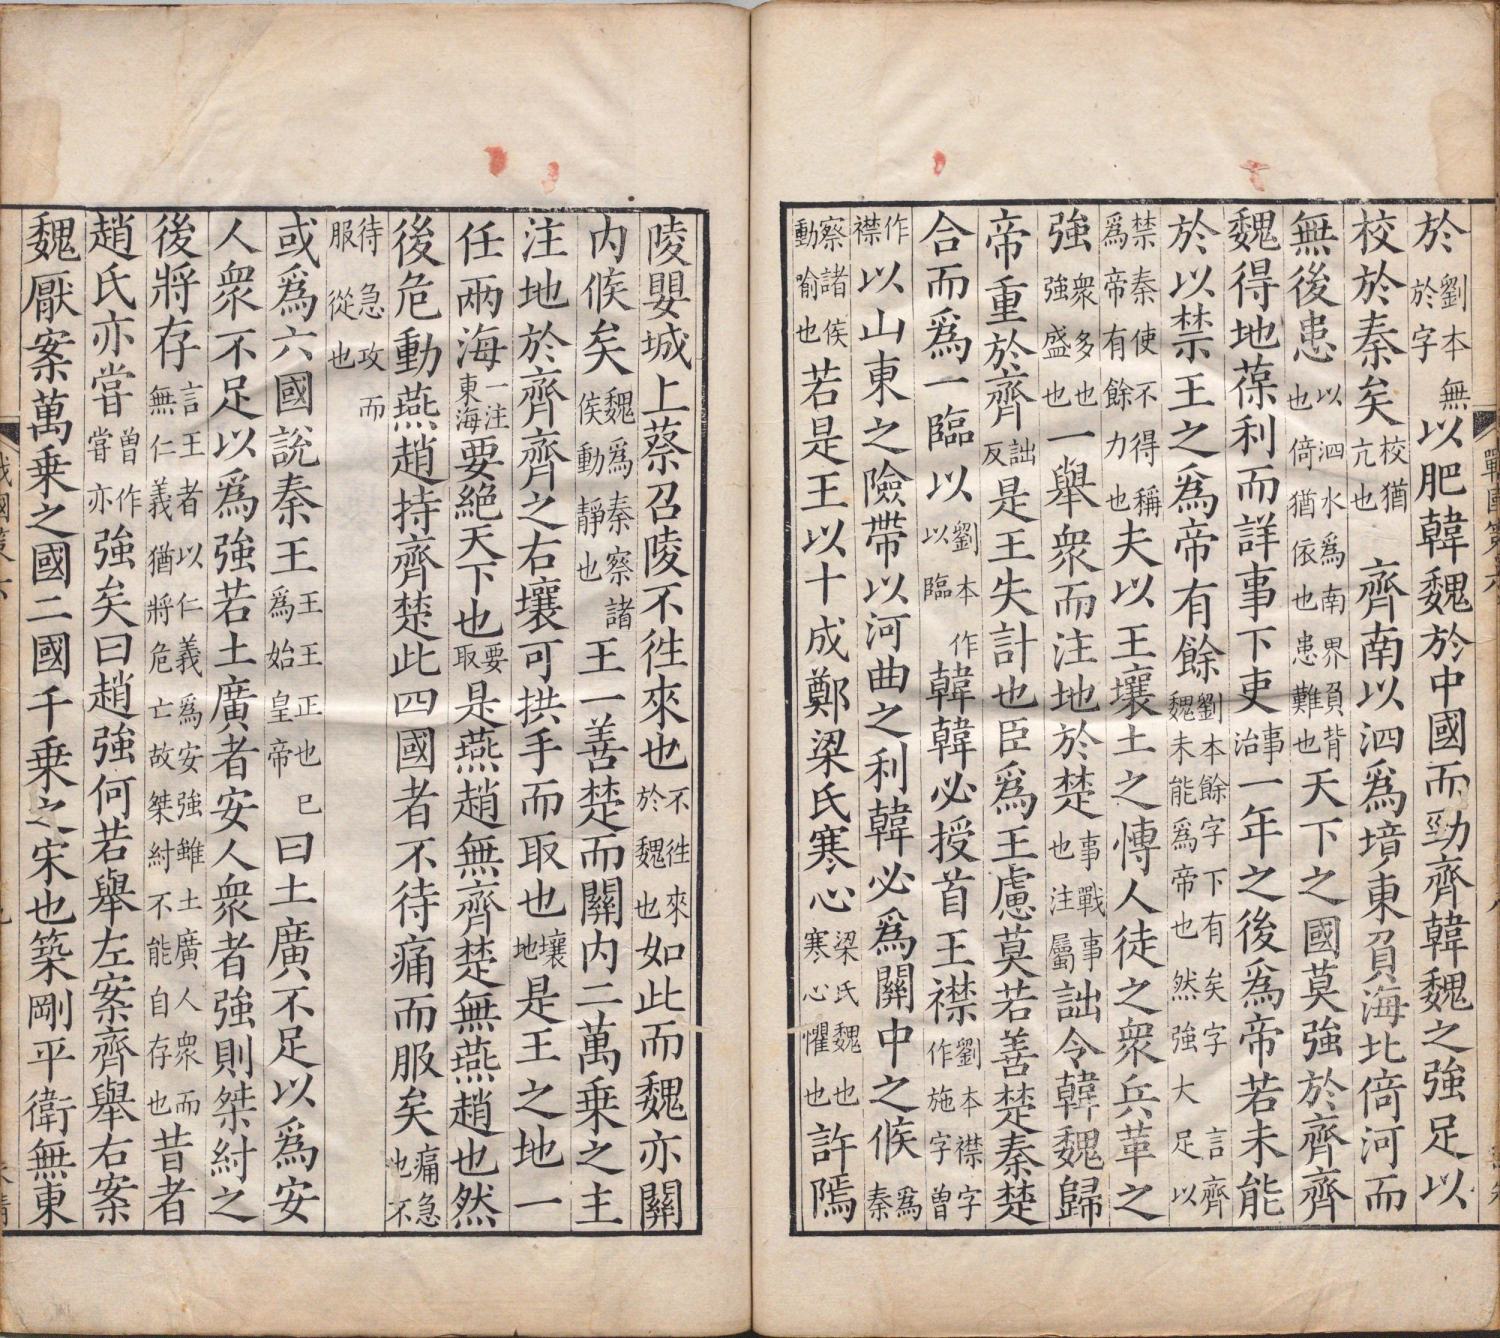 於劉本無於字以肥韓魏於中國而勁齊韓魏之強足以
校於秦矣校猶亢也齊南以泗爲境東負海北倚河而
無後患以泗水爲南界負背也倚猶依也患難也天下之國莫強於齊齊
魏得地葆利而詳事下吏事治一年之後爲帝若未能
於以禁王之爲帝有餘劉本餘字下有矣字言齊魏未能爲帝也然強大足以
禁秦使不得稱爲帝有餘力也夫以王壤土之愽人徒之衆兵革之
強衆多也強盛也一舉衆而注地於楚事戰事也注屬詘令韓魏歸
帝重於齊詘反是王失計也臣爲王慮莫若善楚秦楚
合而爲一臨以劉本作以臨韓韓必授首王襟劉本襟字作施字曾
作襟以山東之險帶以河曲之利韓必爲關中之候爲秦
察諸侯動喻也若是王以十成鄭梁氏寒心梁氏魏也寒心懼也許隖
陵嬰城上蔡召陵不徃來也不徃來於魏也如此而魏亦關
内候矣魏爲秦察諸侯動靜也王一善楚而關内二萬乗之主
注地於齊齊之右壤可拱手而取也壤地是王之地一
任兩海一注東海要絶天下也要取是燕趙無齊楚無燕趙也然
後危動燕趙持齊楚此四國者不待痛而服矣痛急也不
待急攻而服從也
或爲六國説秦王王王正也已爲始皇帝曰土廣不足以爲安
人衆不足以爲強若土廣者安人衆者強則桀紂之
後將存言王者以仁義爲安強雖土廣人衆而無仁義猶將危亡故桀紂不能自存也昔者
趙氏亦嘗曾作嘗亦強矣曰趙強何若舉左案齊舉右案
魏厭案萬乗之國二國千乗之宋也築剛平衛無東